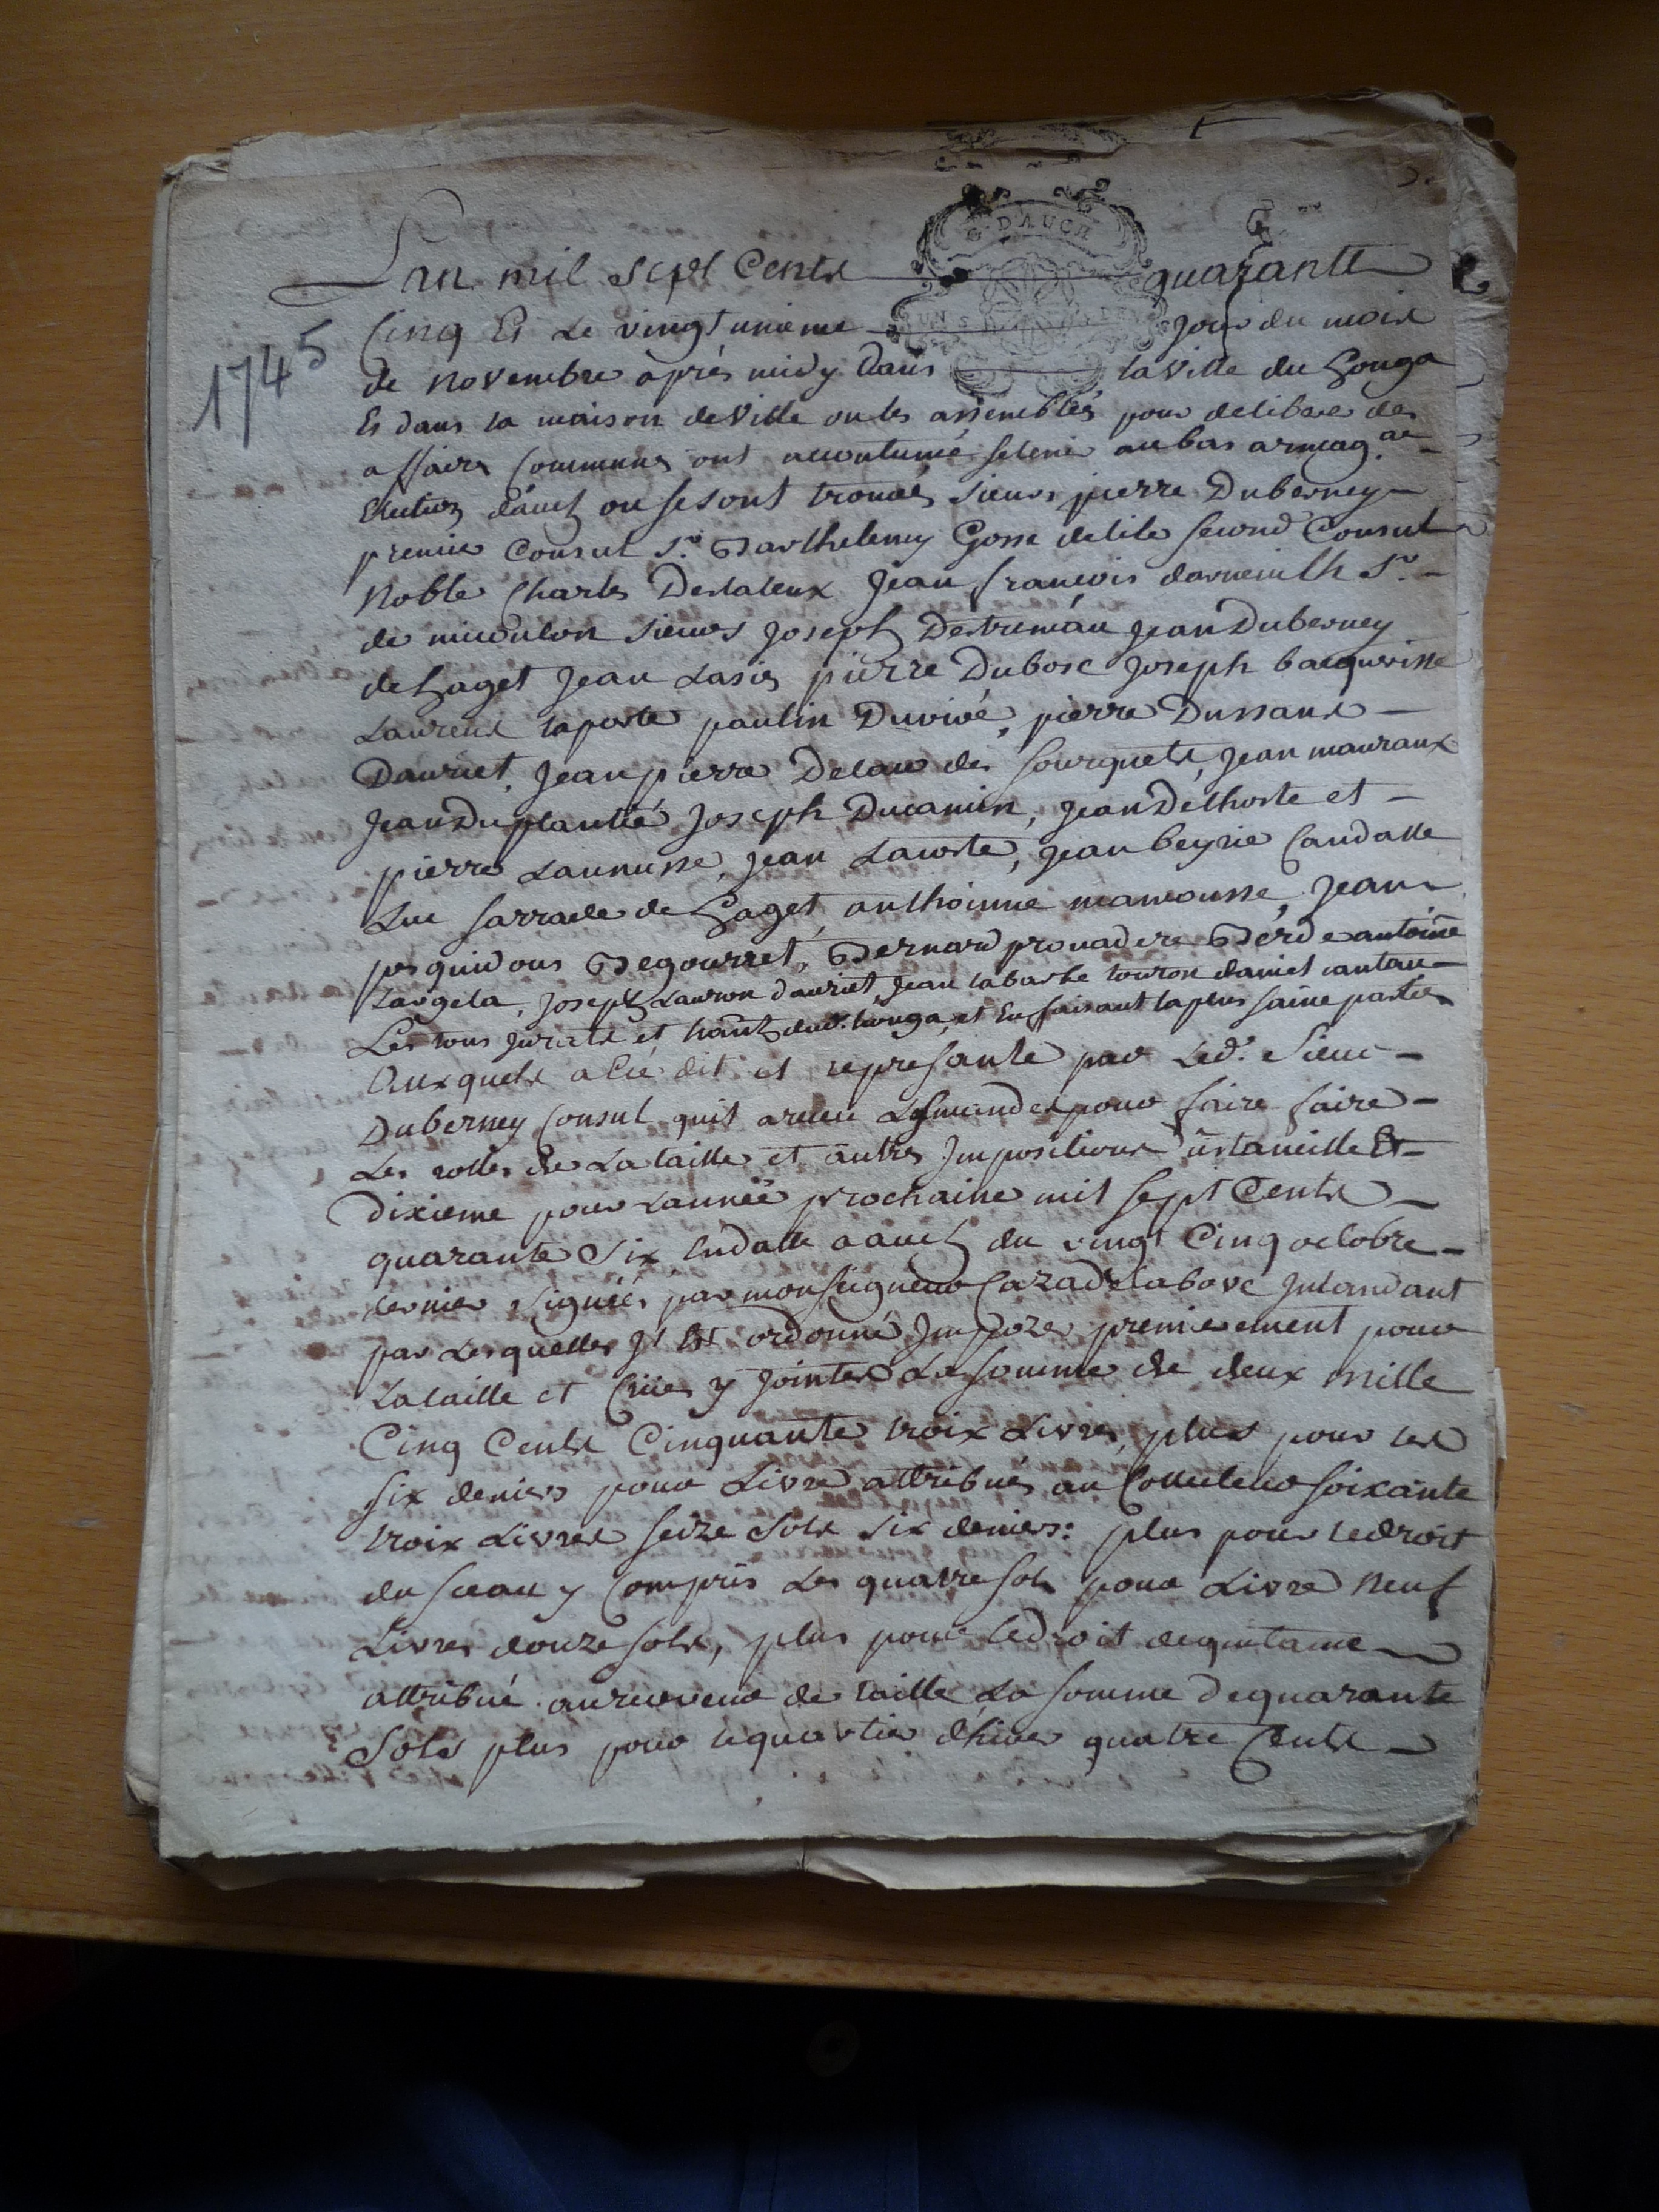 G. D'AUCH
Lan mil sept Cents quarante
Cinq Et Le vingt unieme jour du mois
1745
de novembre après midy dans la Ville du houga
Et dans la maison de Ville ou les assemblées pour deliberer des
affaires Communes ont accoutumé se tenir au bas armag.ac
Election d'auch ou se sont trouvés sieurs pierre Duberney
premier Consul Sr. Barthelemy Gosse delile second Consul
Noble Charles Destaleux Jean françois darneuilh Sr.
de micoulon sieurs Joseph Destremau Jean Duberney
de haget Jean Lasies pierre Dubosc Joseph bacquerisse
Laurens laporte paulin Duvivé, pierre Dussans
Dauriet, Jean pierre Delau des sourquets, Jean mauraux
Jean Duplantié Joseph Ducamin, Jean Delhoste et
pierre Lanusse, Jean Lacoste, Jean beyrie Candalle
Luc sarrade de haget, anthoinne mamousse, Jean
pesquidous Begourret, Bernard prouadere Berde antoine
Largela, Joseph Lauron dauriet Jean labarbe touron daniel cantau
Les tous jurats et hants dud. houga, et En faisant la plus saine partie
Auxquels a Eté dit et represanté par Led. Sieur
Duberney Consul quil a receu Les mandes pour faire faire
Les rolles de La taille et autres Impositions ustancille Et
Dixieme pour Lannée prochaine mil sept Cents
quarante Six En datte a auch du vingt Cinq octobre
dernier signées par monseigneur Caze de la bove Intandant
par Lesquelles Il Est ordonné Impozer premierement pour
La taille et Crües y jointes La somme de deux mille
Cinq Cents Cinquante troix Livres, plus pour les
six deniers pour Livre attribués au Collecteur soixante
troix Livres seize sols six deniers: plus pour le droit
du sceau y Compris Les quatre sols pour Livre Neuf
Livres douze sols, plus pour le droit de quitance
attribué au receveur de taille La somme de quarante
Sols plus pour le quartier d'hiver quatre Cents